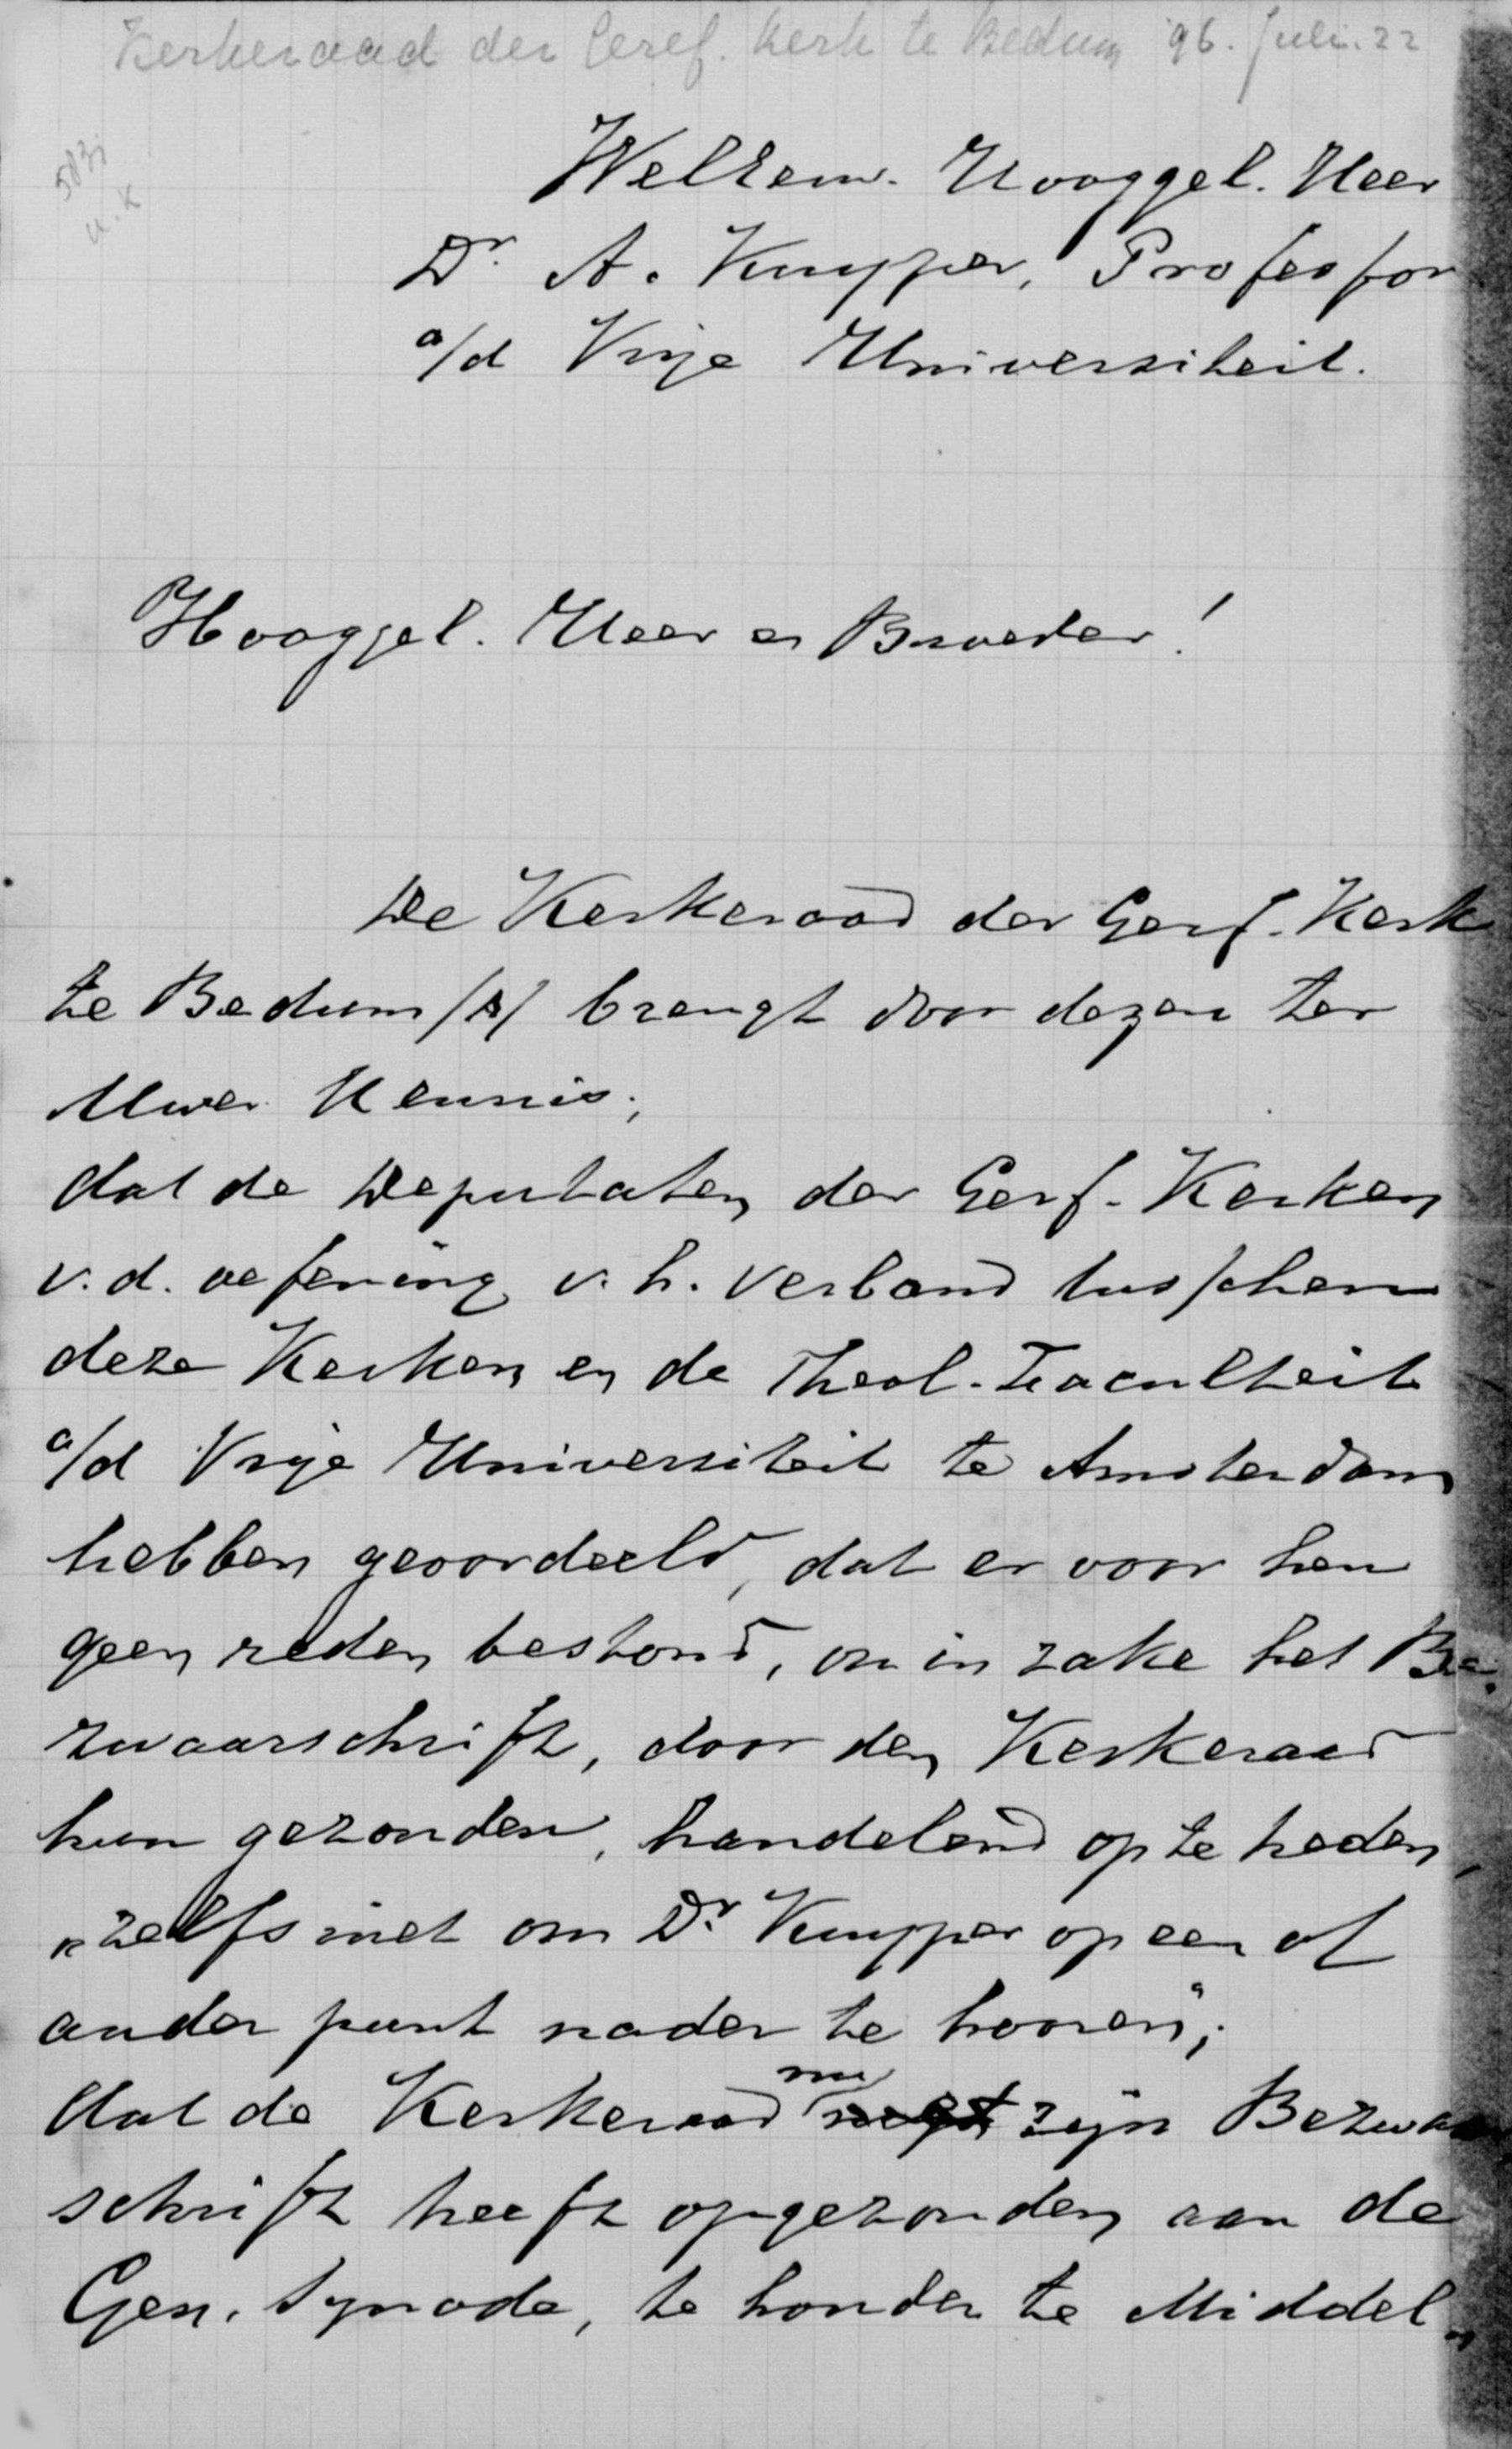 Kerkeraad der Geref. Kerk te Bedum '96. Juli. 22
5831
a. K
WelEerw. Hooggel. Heer
Dr. A. Kuyper, Professor
a/d Vrije Universiteit.
Hooggel. Heer en Broeder!
De Kerkeraad der Geref. Kerk
te Bedum /A/ brengt door dezen ter
Uwer Kennis;
dat de Deputaten der Geref. Kerken
v. d. oefening v. h. verband tusschen
deze Kerken en de Theol. Faculteit
a/d Vrije Universiteit te Amsterdam
hebben geoordeeld, dat er voor hen
geen reden bestond, om in zake het Be-
zwaarschrift, door den Kerkeraad
hun gezonden, handelend op te treden,
„zelfs niet om Dr. Kuyper op een of
ander punt nader te hooren";
dat de Kerkeraad nu zijn Bezwaar
schrift heeft opgezonden aan de
Gen. Synode, te houden te Middel-